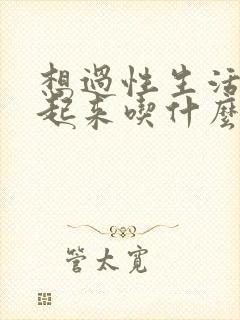 想过性生活
起来喫什麼
管太寬